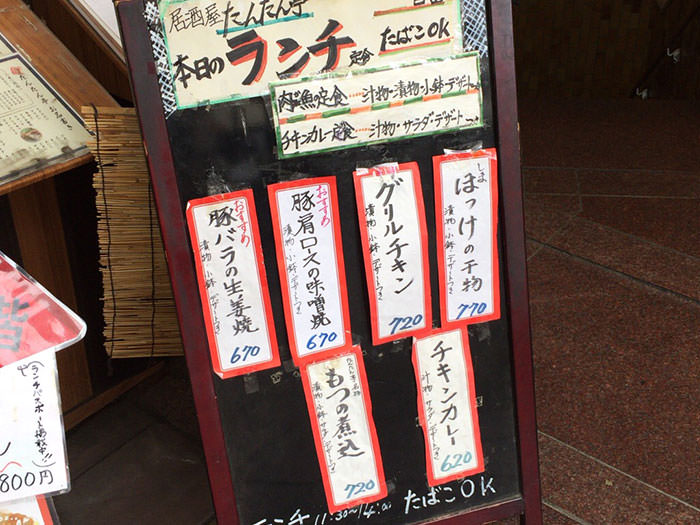 居酒屋 たんたん亭
本日のランチ定食 たばこOK
肉と魚の定食…汁物・漬物・小鉢・デザート
チキンカレー定食…汁物・サラダ・デザート
しまほっけの干物
漬物・小鉢・デザートつき
770
グリルチキン
漬物・小鉢・デザートつき
720
おすすめ
豚肩ロースの味噌焼
漬物・小鉢・デザートつき
670
おすすめ
豚バラの生姜焼
漬物・小鉢・デザートつき
670
チキンカレー
汁物・サラダ・デザートつき
620
たんたん亭名物
もつの煮込
漬物・小鉢・デザートつき
720
ランチ 11:30~14:00 たばこOK
ランチパスポート掲載中!!
800円